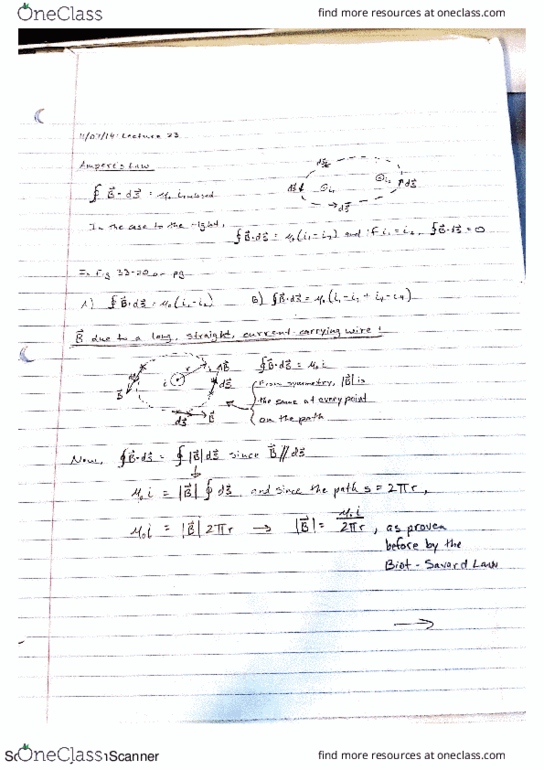 OneClass
find more resources at oneclass.com
11/07/14 Lecture 23
Ampere's Law
∮ B⃗·ds⃗ = μ₀ i enclosed
ds⃗
ds⃗ i₁ i₂ ds⃗
ds⃗
In the case to the right, ∮B⃗·ds⃗ = μ₀(i₁-i₂) and if i₁=i₂, ∮B⃗·ds⃗ = 0
Fig 33-20 pg
A) ∮B⃗·ds⃗ = μ₀( B) ∮B⃗·ds⃗ = μ₀(
B⃗ due to a long, straight, current-carrying wire:
i r B⃗ ds⃗
B⃗
ds⃗ B⃗
∮B⃗·ds⃗ = μ₀i
From symmetry, |B⃗| is
the same at every point
on the path
Now, ∮B⃗·ds⃗ = ∮|B⃗|ds⃗ since B⃗//ds⃗
μ₀i = |B⃗|∮ds⃗ and since the path s = 2πr,
μ₀i = |B⃗|2πr → |B⃗| = μ₀i/2πr, as proven
before by the
Biot-Savard Law
→
OneClass Scanner
find more resources at oneclass.com